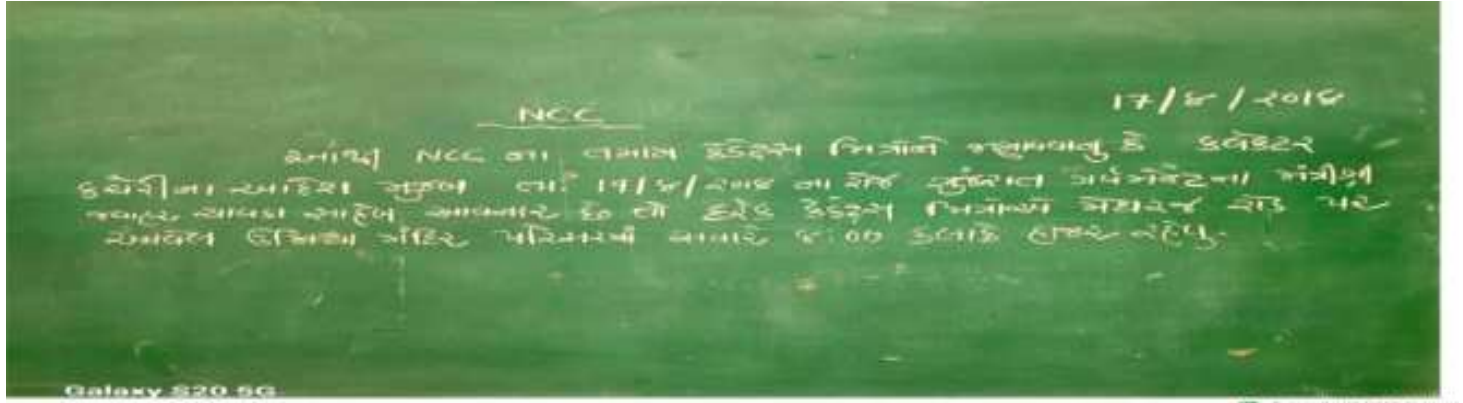 ૧૭/૪/૨૦૧૪
NCC
NCC ના તમામ કેડેટ્સ મિત્રોને જણાવવાનું કે કલેકટર
કચેરીના આદેશ મુજબ તા: ૧૭/૪/૨૦૧૪ ના રોજ ગુજરાત ગર્વમેંટના મંત્રીશ્રી
જવાહર ચાવડા સાહેબ આવનાર છે તો દરેક કેડેટ્સ મિત્રોએ રોડ પર
આવેલ ઉમિયા મંદિર પરિસરમાં સવારે ૮:૦૦ કલાકે હાજર રહેવું.
Galaxy S20 5G